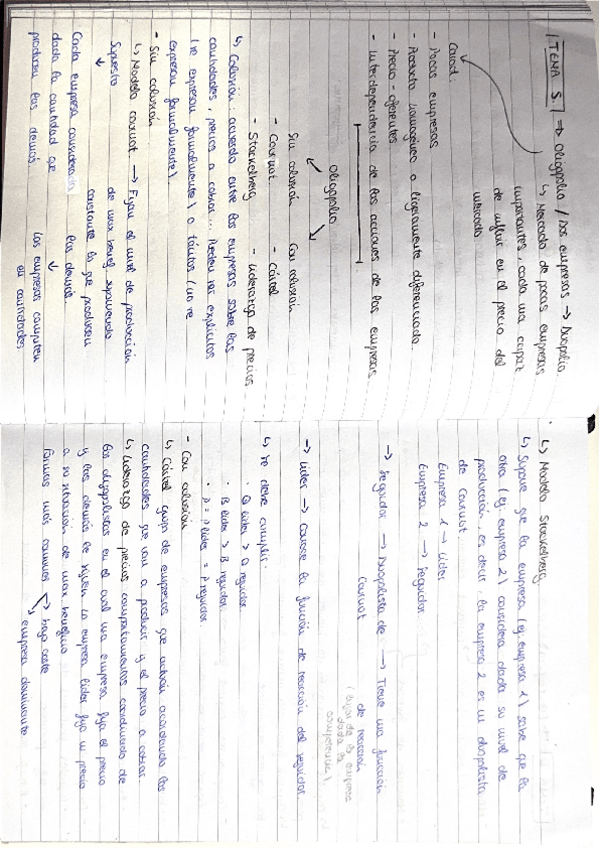 TEMA 5. => Oligopolio / Dos empresas -> Duopolio
↳ Mercado de pocas empresas
importantes, cada una capaz
de influir en el precio del
mercado
Caract:
- Pocas empresas
- Producto homogéneo o ligeramente diferenciado.
- Precio-oferentes
- Interdependencia de las acciones de las empresas
Oligopolio
Sin colusión Con colusión
- Cournot - Cártel
- Stackelberg - Liderazgo de precios
↳ Colusión: acuerdo entre las empresas sobre las
cantidades, precios a cobrar... Pueden ser explícitos
(se expresan formalmente) o tácitos (no se
expresan formalmente).
- Sin colusión
↳ Modelo cournot -> Fijan el nivel de producción
Supuesto de max benef. suponiendo
constante la que producen
los demás.
Cada empresa considerada
dada la cantidad que
producen las demás.
Las empresas compiten
en cantidades
↳ Modelo Stackelberg
↳ Supone que la empresa (ej. empresa 1) sabe que la
otra (ej. empresa 2) considera dada su nivel de
producción, es decir, la empresa 2 es un duopolista
de Cournot.
Empresa 1 -> Líder
Empresa 2 -> Seguidor
-> Seguidor -> Duopolista de -> Tiene una función
Cournot de reacción
(fijar de la empresa
dada la
competencia).
-> Líder -> Conoce la función de reacción del seguidor
↳ Se debe cumplir:
· Q líder > Q seguidor
· B líder > B seguidor
· P = P líder = P seguidor.
- Con colusión
↳ Cártel: grupo de empresas que actúan acordando las
cantidades que van a producir y el precio a cobrar.
↳ Liderazgo de precios: comportamiento coordinado de
los oligopolistas en el cual una empresa fija el precio
y las demás le siguen. La empresa líder fija su precio
a su situación de max beneficio
Formas más comunes -> bajo coste
empresa dominante